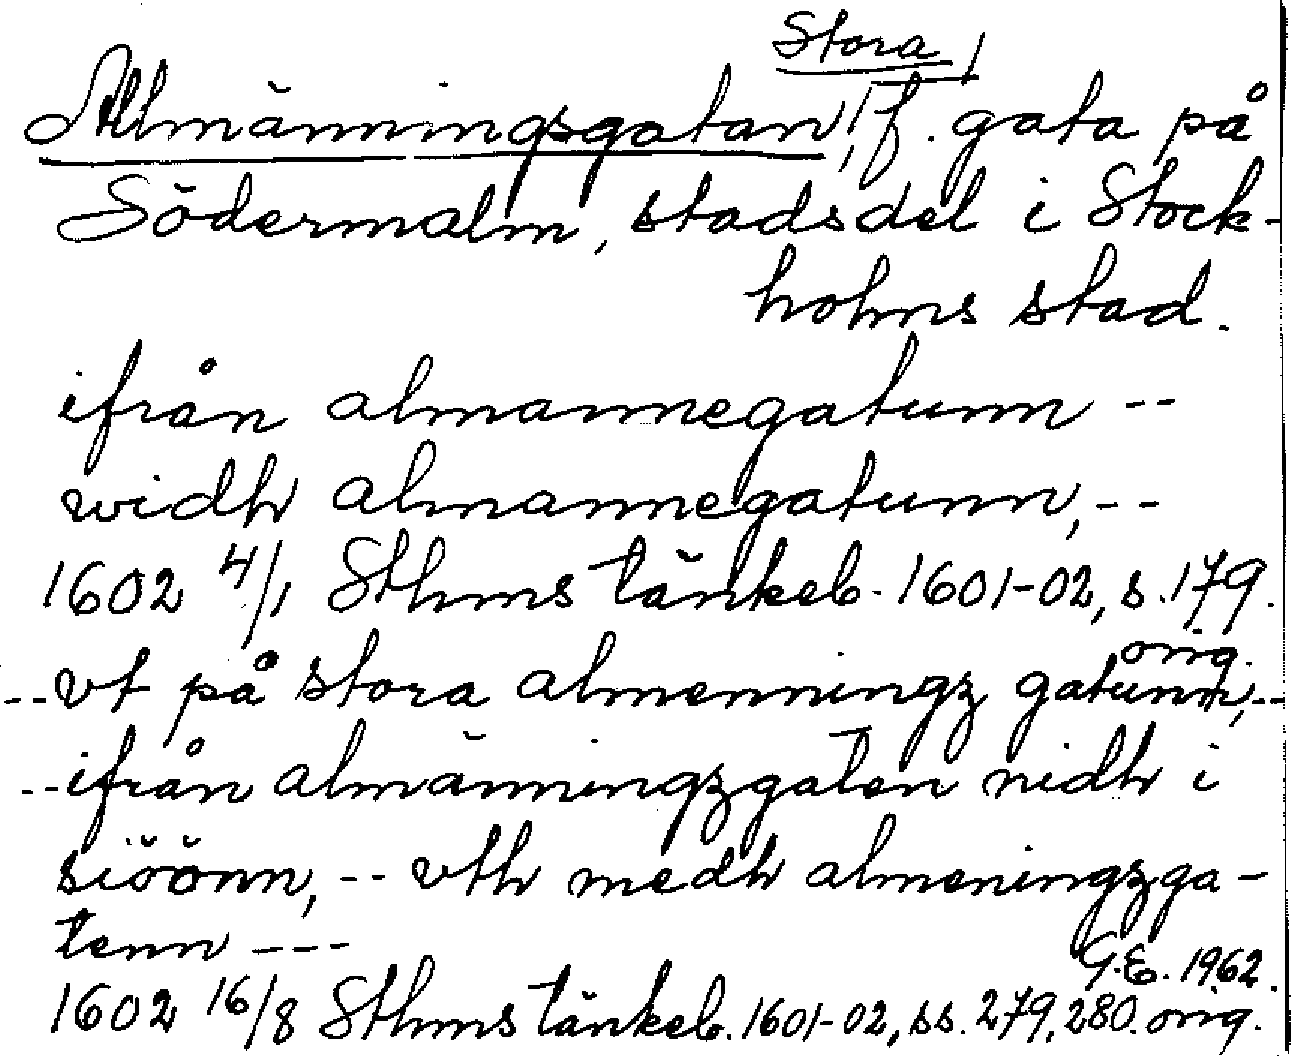 Stora
Allmänningsgatan, f. gata på
Södermalm, stadsdel i Stock-
holms stad.
ifrån almannegatunn --
widh almannegatunn, --
1602 4/1 Sthms tänkeb. 1601-02, s. 179.
orig.
-- vt på stora almenningz gatunn, --
-- ifrån almänningzgaten nidh i
siöönn, -- vth medh almeningzga-
tenn ---
G.E. 1962.
1602 16/8 Sthms tänkeb. 1601-02, ss. 279, 280. orig.